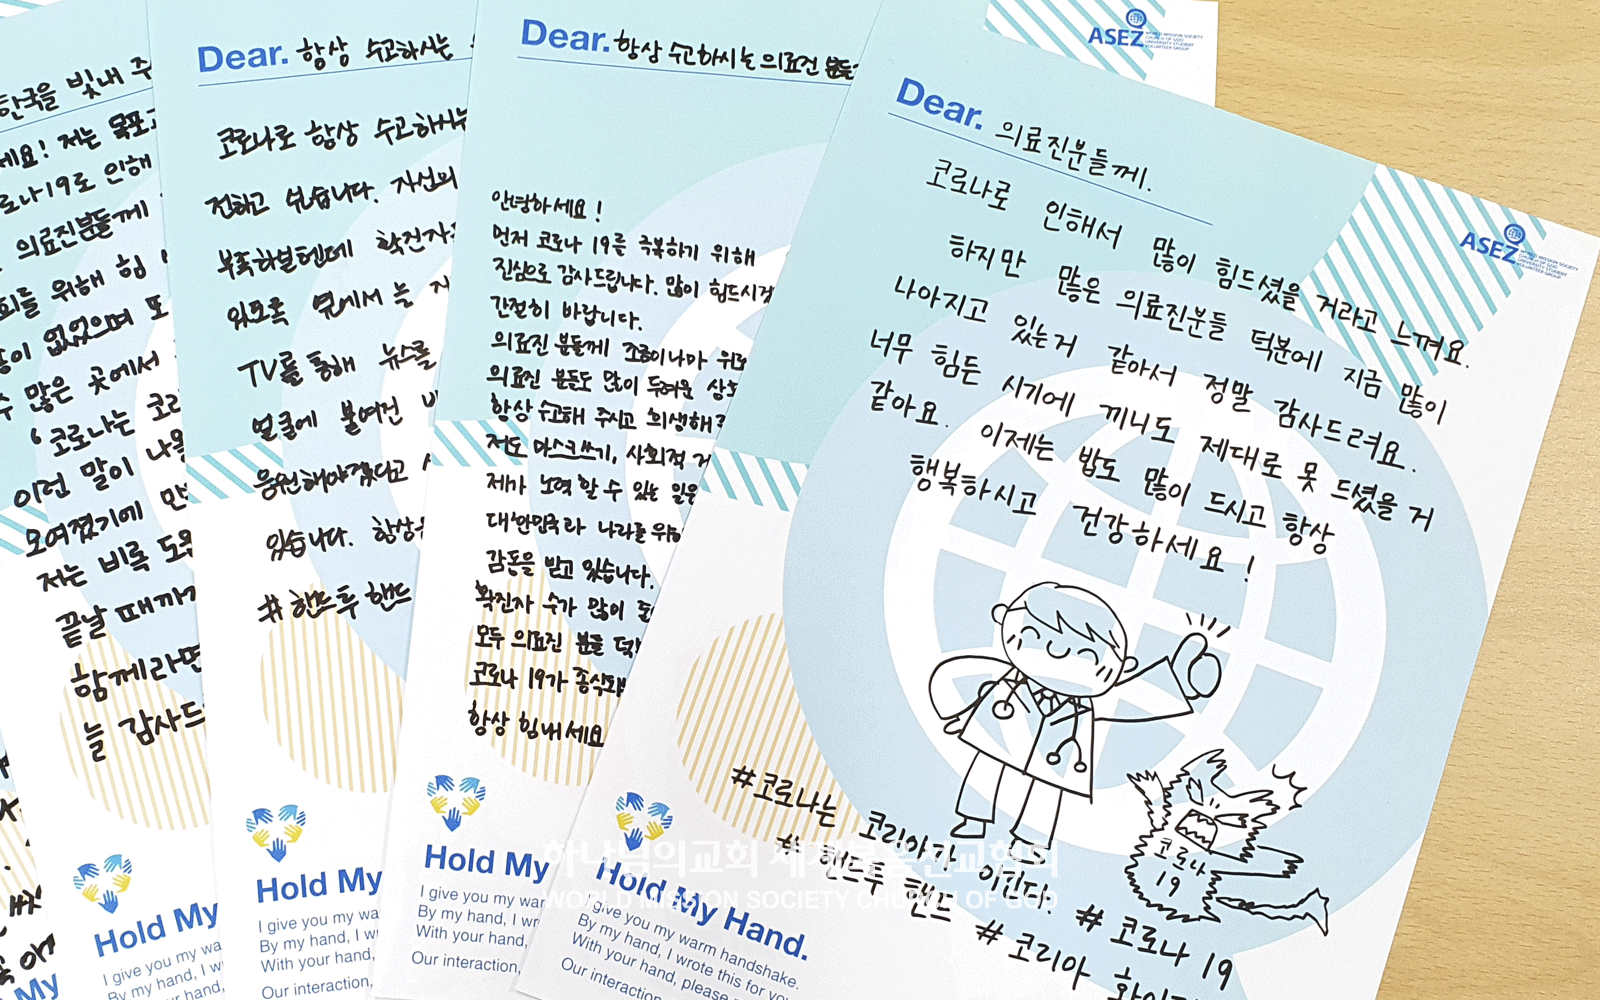 한국을 빛내 주
세요! 저는 목포
로나19로 인해
의료진분들께
희를 위해 힘
없었으며 또
수 많은 곳에서
'코로나는 코리
이런 말이 나올
모여졌기에 만
저는 비록 도움
끝날 때까지
함께라면
늘 감사드
Hold My
I give you my wa
By my hand, I w
your hand,
My
Dear. 항상 수고하시는
코로나로 항상 수고하시는
전하고 싶습니다. 자신의
부족하실텐데 확진자
있도록 옆에서 는
TV를 통해 뉴스를
얼굴에 붙여진
응원해야겠다고
있습니다. 항상
#핸드투핸드
Hold My
I give you my wa
By my hand, I w
With your hand,
Our interaction,
Dear. 항상 수고하시는 의료진 분들
안녕하세요!
먼저 코로나 19를 극복하기 위해
진심으로 감사드립니다. 많이 힘드시겠
간절히 바랍니다.
의료진 분들께 조금이나마 위로
의료진 분들도 많이 두려운 상황
항상 수고해 주시고 희생해주
저도 마스크쓰기, 사회적 거
제가 노력 할 수 있는 일은
대한민국라 나라를 위해
감동을 받고 있습니다.
확진자 수가 많이
모두 의료진 분들 덕
코로나 19가 종식되
항상 힘내세요
Hold My
I give you my war
By my hand, I wr
With your hand,
Our interaction,
ASEZ
WORLD MISSION SOCIETY
CHURCH OF GOD
UNIVERSITY STUDENT
VOLUNTEER GROUP
Dear. 의료진분들께.
코로나로 인해서 많이 힘드셨을 거라고 느껴요.
하지만 많은 의료진분들 덕분에 지금 많이
나아지고 있는거 같아서 정말 감사드려요.
너무 힘든 시기에 끼니도 제대로 못 드셨을 거
같아요. 이제는 밥도 많이 드시고 항상
행복하시고 건강하세요!
코로나
19
#코로나는 코리아가 이긴다! #코로나 19
#핸드투 핸드 #코리아 화이팅
Hold My Hand.
I give you my warm handshake.
By my hand, I wrote this for you
With your hand, please
Our interaction,
ASEZ
WORLD MISSION SOCIETY
CHURCH OF GOD
UNIVERSITY STUDENT
VOLUNTEER GROUP
하나님의교회 세계복음선교협회
WORLD MISSION SOCIETY CHURCH OF GOD